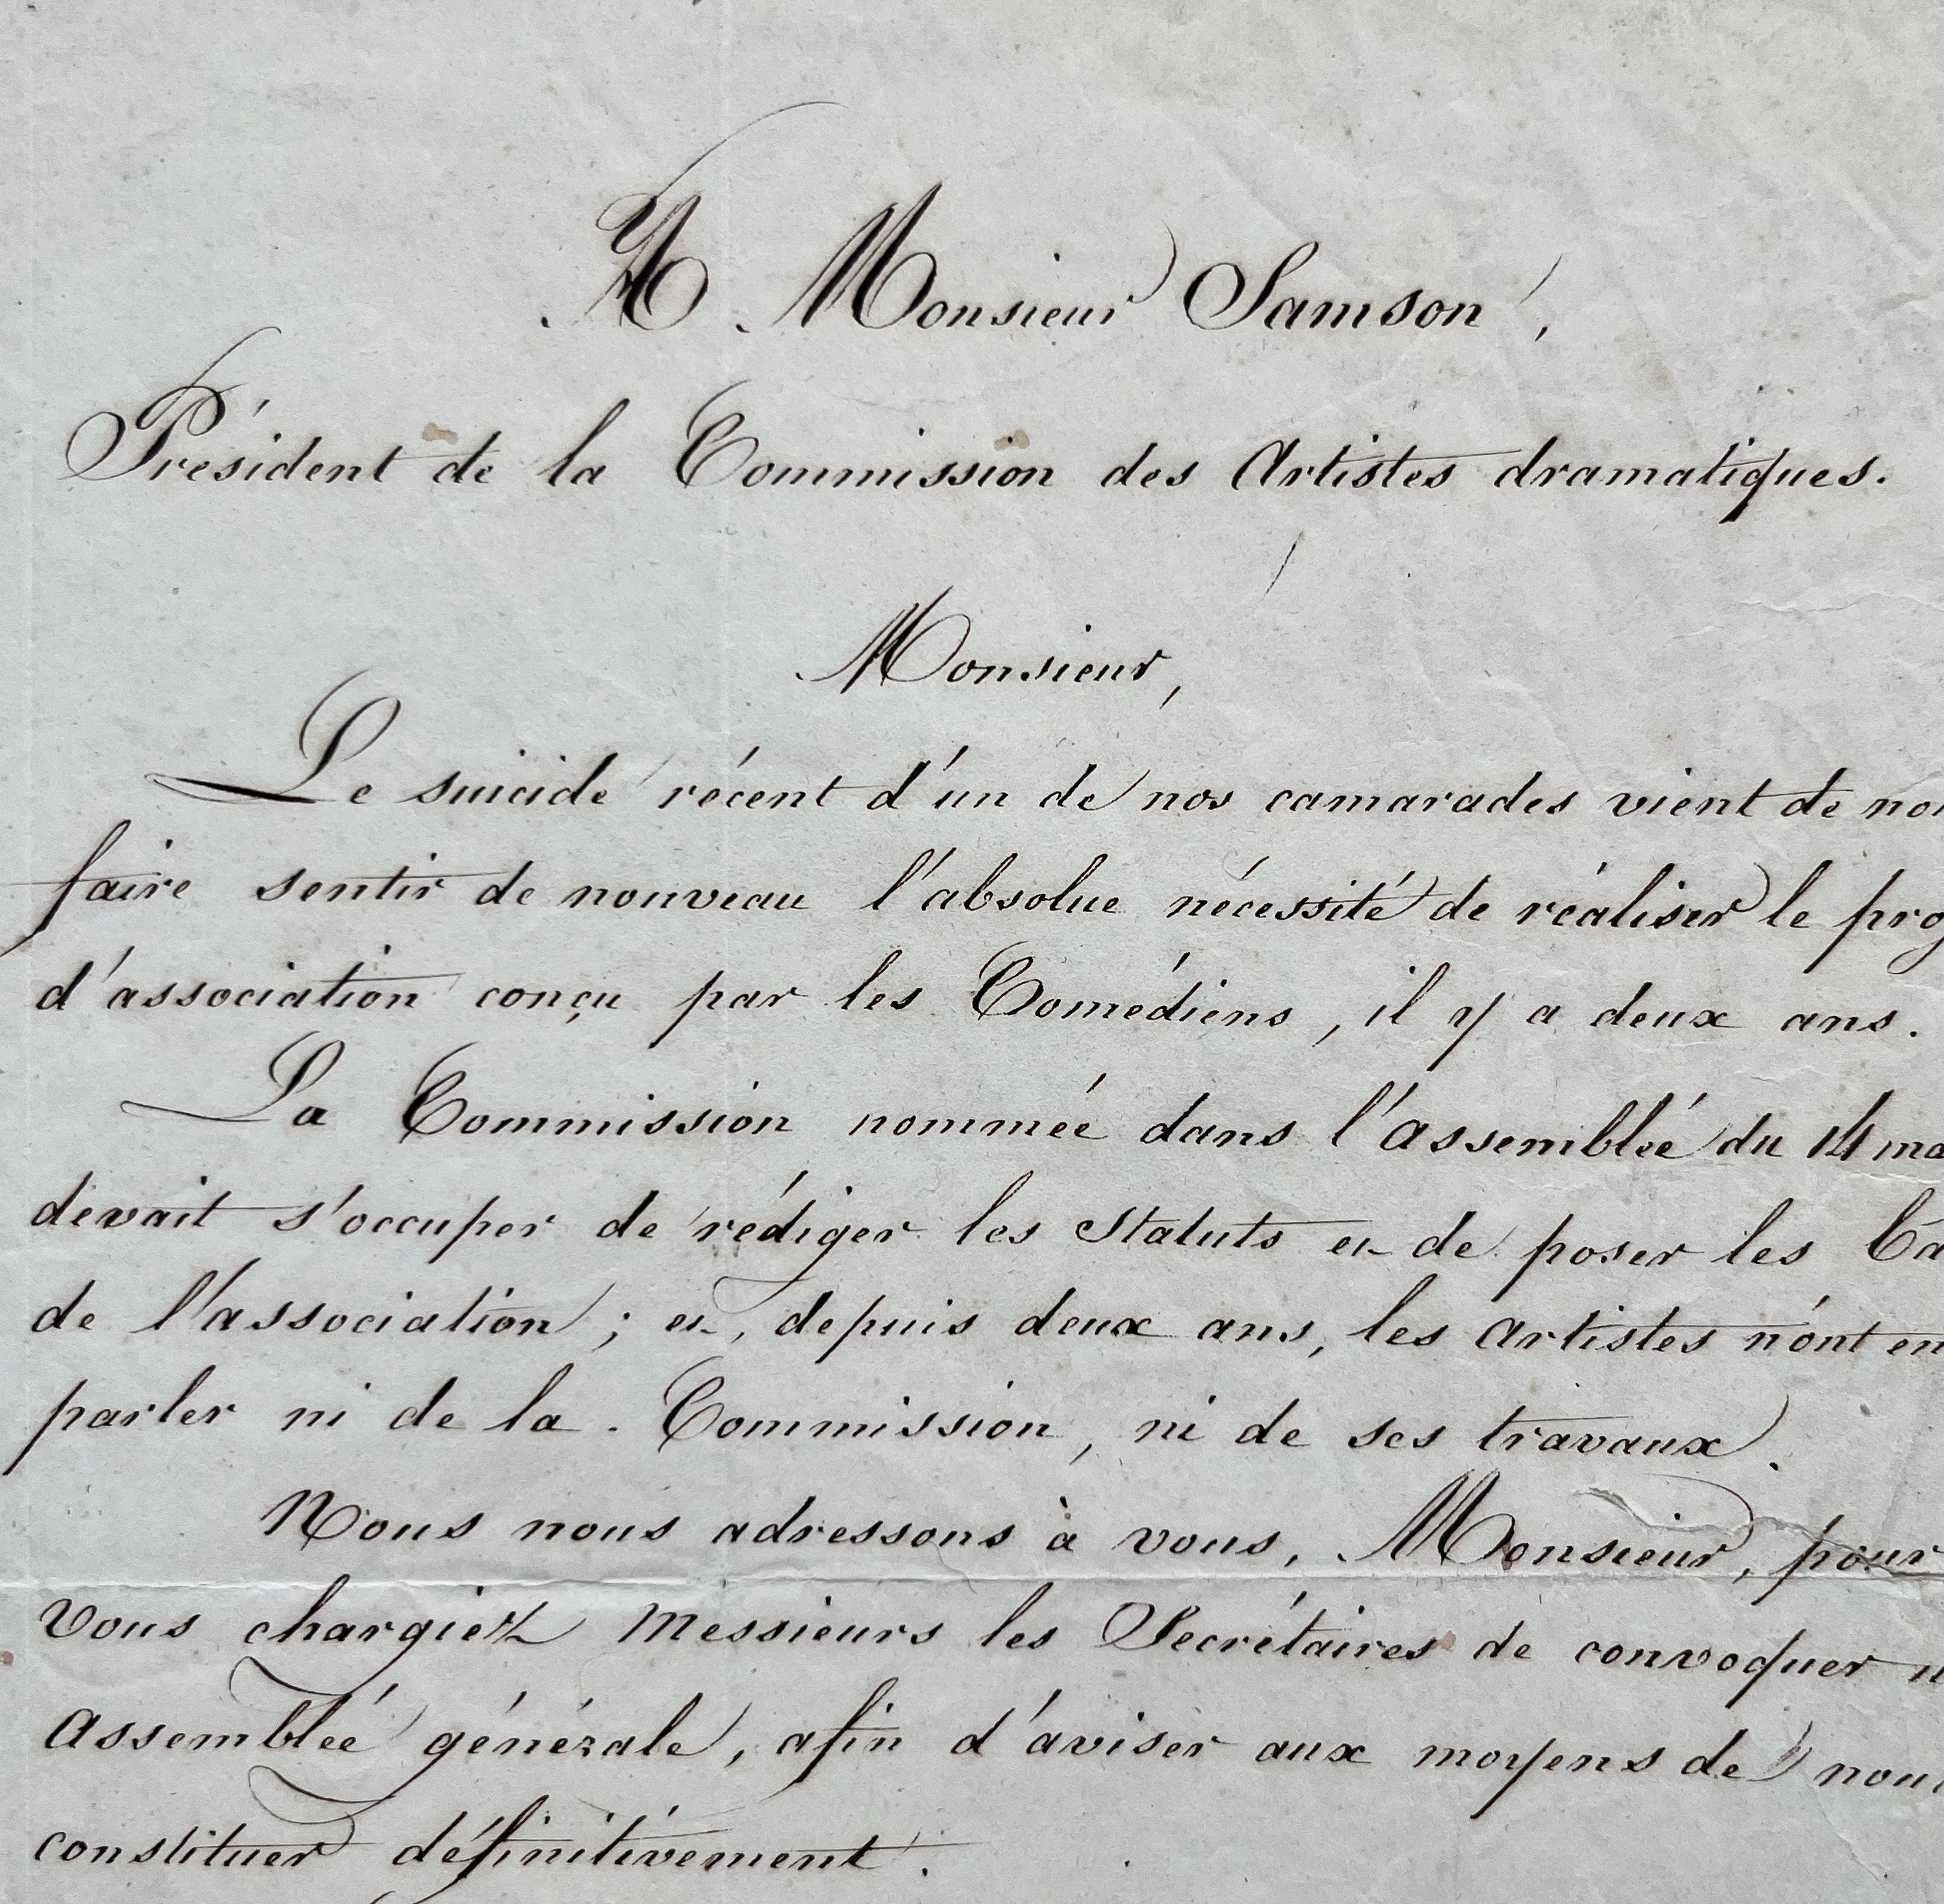 A Monsieur Samson,
Président de la Commission des Artistes dramatiques.
Monsieur,
Le suicide récent d'un de nos camarades vient de nou
faire sentir de nouveau l'absolue nécessité de réaliser le proj
d'association conçu par les Comédiens, il y a deux ans.
La Commission nommée dans l'assemblée du 14 ma
devait s'occuper de rédiger les Statuts et de poser les ba
de l'association; et, depuis deux ans, les Artistes n'ont en
parler ni de la Commission, ni de ses travaux.
Nous nous adressons à vous, Monsieur, pour
vous chargiez Messieurs les Secrétaires de convoquer u
Assemblée générale, afin d'aviser aux moyens de nou
constituer définitivement.